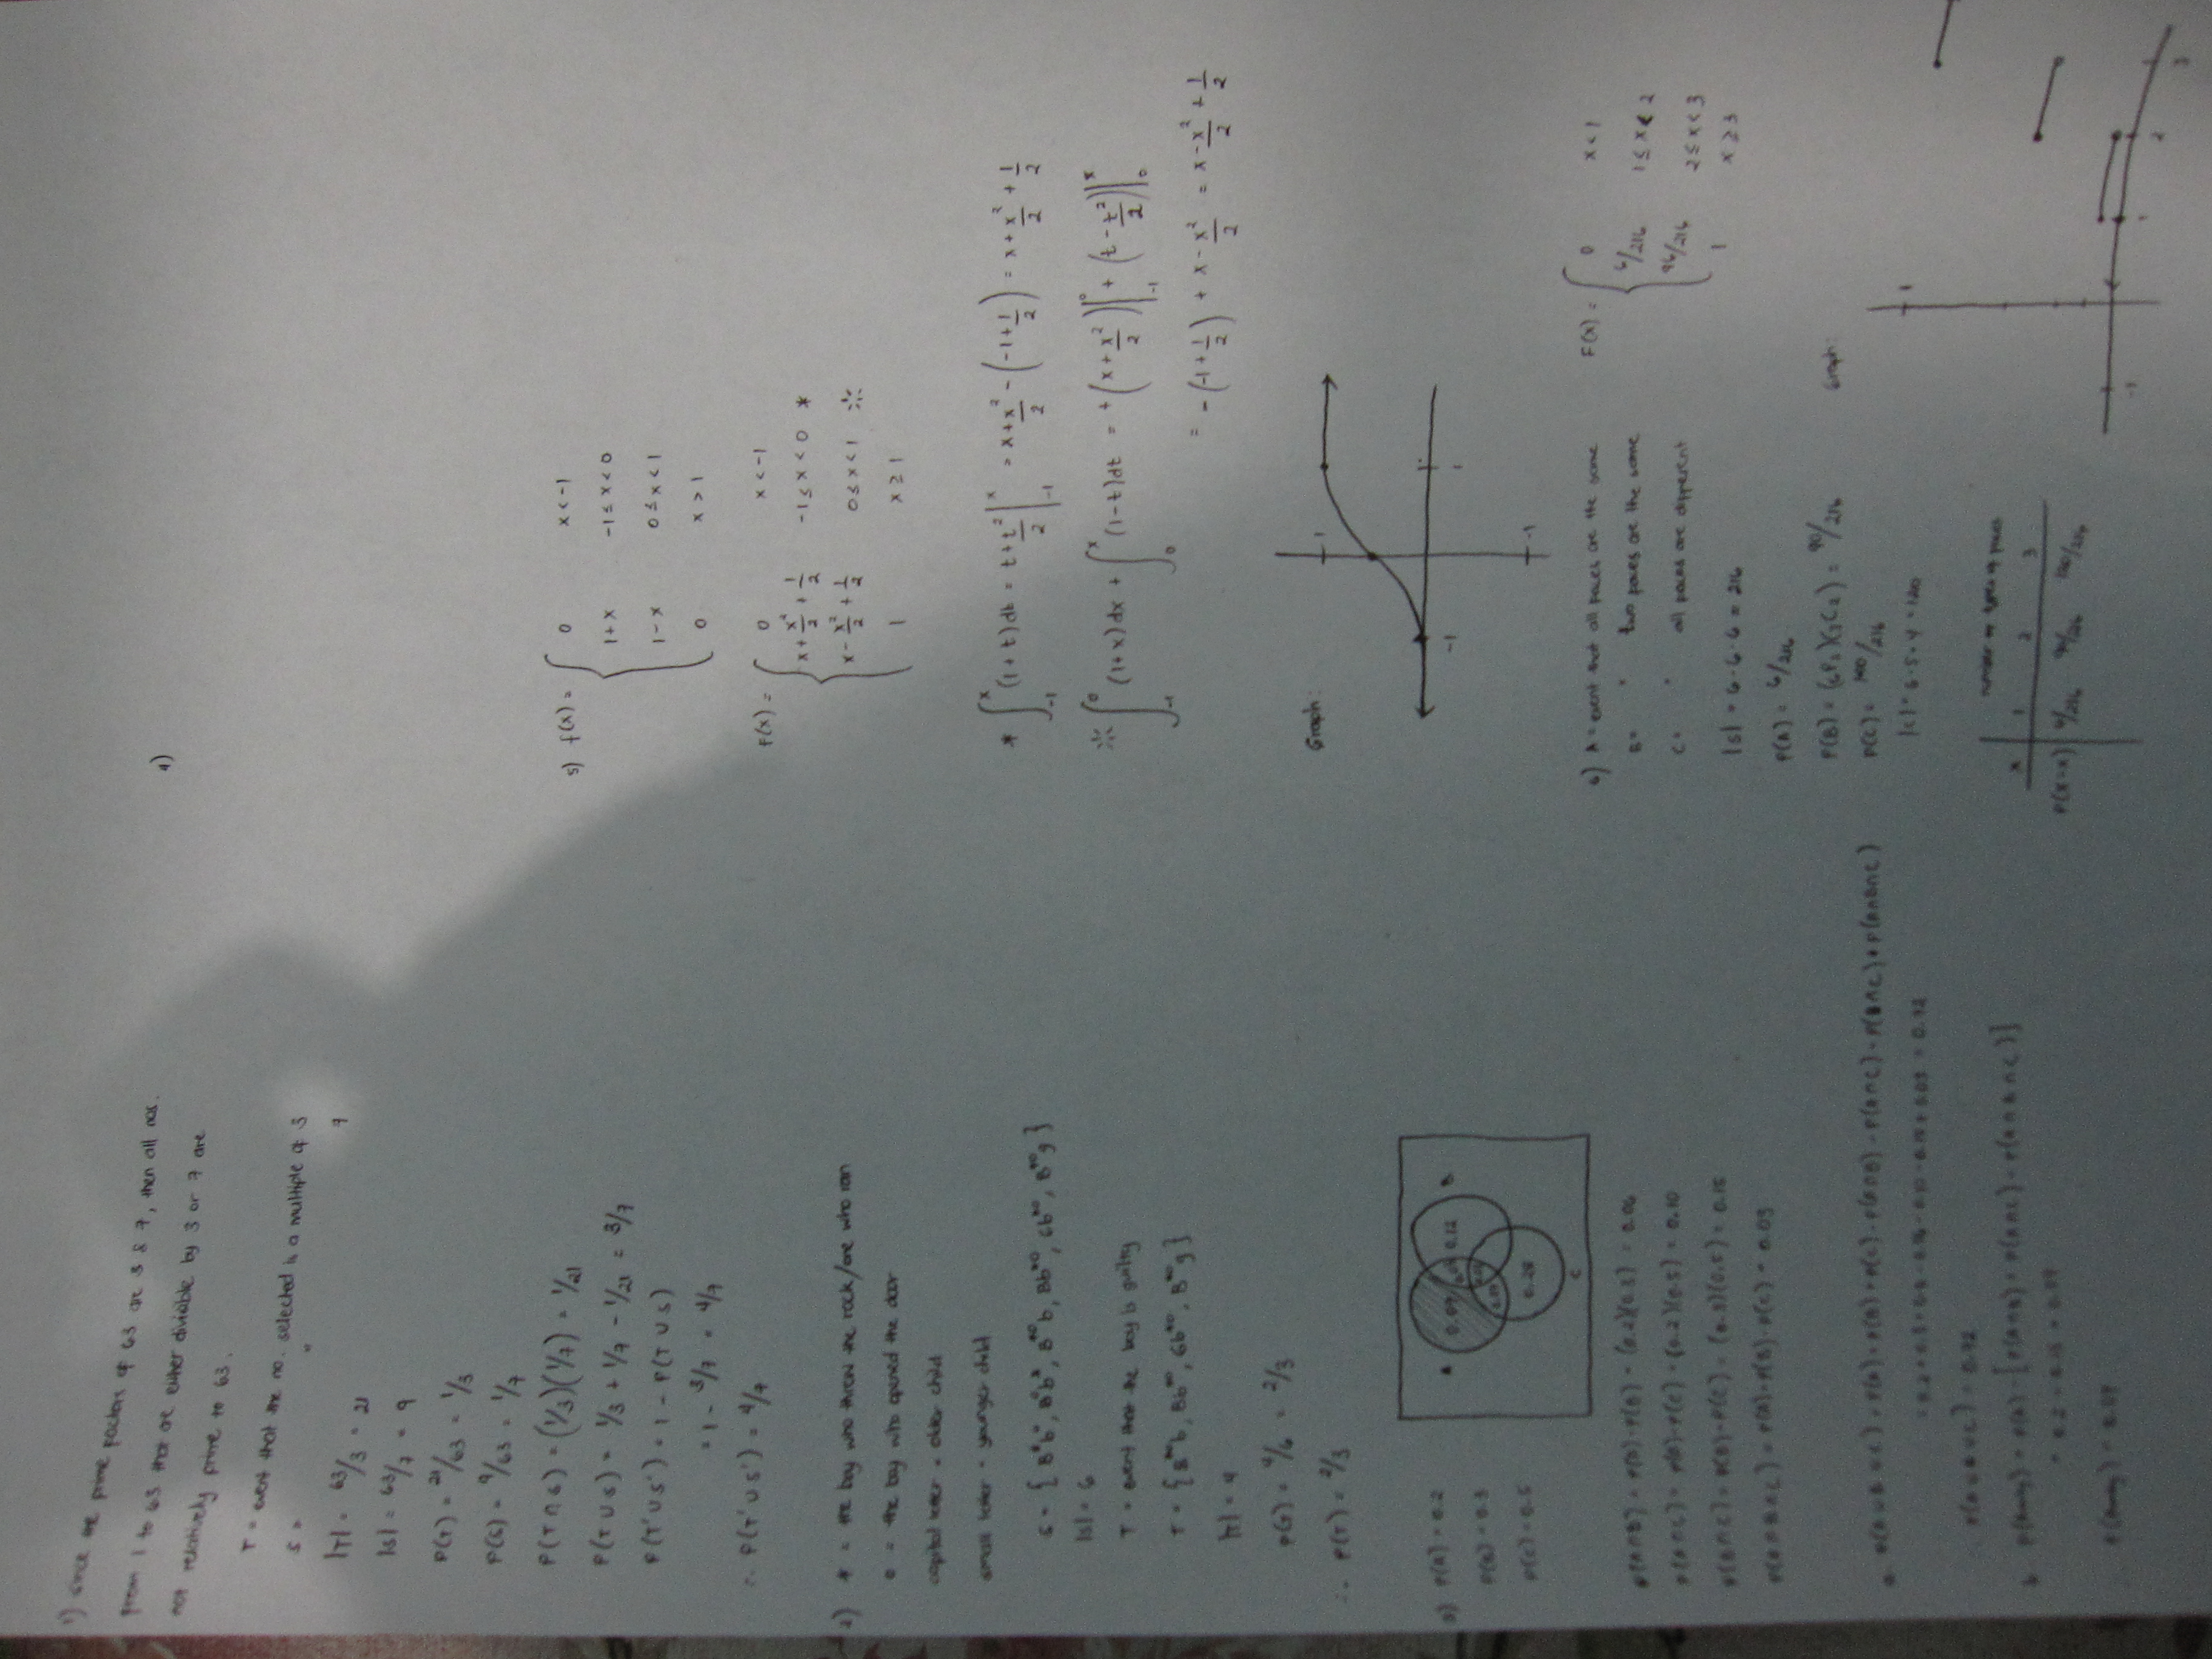 1) Since the prime factors of 63 are 3 & 7, then all nos.
from 1 to 63 that are either divisible by 3 or 7 are
not relatively prime to 63.
T = event that the no. selected is a multiple of 3
S = " 7
|T| = 63/3 = 21
|S| = 63/7 = 9
P(T) = 21/63 = 1/3
P(S) = 9/63 = 1/7
P(T∩S) = (1/3)(1/7) = 1/21
P(T∪S) = 1/3 + 1/7 - 1/21 = 3/7
P(T'∪S') = 1 - P(T∪S)
= 1 - 3/7 = 4/7
∴ P(T'∪S') = 4/7
2) * = the boy who threw the rock/one who ran
o = the boy who opened the door
capital letter = older child
small letter = younger child
S = { B*b°, B°b*, B*°b, Bb*°, Gb*°, B*°g }
|S| = 6
T = event that the boy is guilty
T = { B*°b, Bb*°, Gb*°, B*°g }
|T| = 4
P(T) = 4/6 = 2/3
∴ P(T) = 2/3
3) P(A) = 0.2
P(B) = 0.3
P(C) = 0.5
A 0.07 0.12 B
0.28
C
P(A∩B) = P(A)·P(B) = (0.2)(0.3) = 0.06
P(A∩C) = P(A)·P(C) = (0.2)(0.5) = 0.10
P(B∩C) = P(B)·P(C) = (0.3)(0.5) = 0.15
P(A∩B∩C) = P(A)·P(B)·P(C) = 0.03
a. P(A∪B∪C) = P(A) + P(B) + P(C) - P(A∩B) - P(A∩C) - P(B∩C) + P(A∩B∩C)
= 0.2 + 0.3 + 0.5 - 0.06 - 0.10 - 0.15 + 0.03 = 0.72
P(A∪B∪C) = 0.72
b. P(A only) = P(A) - [P(A∩B) + P(A∩C) - P(A∩B∩C)]
= 0.2 - 0.13 = 0.07
P(A only) = 0.07
4)
5) f(x) = { 0 x < -1
1+x -1 ≤ x < 0
1-x 0 ≤ x < 1
0 x > 1
F(x) = { 0 x < -1
x + x²/2 + 1/2 -1 ≤ x < 0 *
x - x²/2 + 1/2 0 ≤ x < 1 ※
1 x ≥ 1
* ∫₋₁ˣ (1+t)dt = t + t²/2 |₋₁ˣ = x + x²/2 - (-1 + 1/2) = x + x²/2 + 1/2
※ ∫₋₁⁰ (1+x)dx + ∫₀ˣ (1-t)dt = + (x + x²/2)|₋₁⁰ + (t - t²/2)|₀ˣ
= -(-1 + 1/2) + x - x²/2 = x - x²/2 + 1/2
Graph:
1
-1 1
-1
6) A = event that all faces are the same
B = " two faces are the same
C = " all faces are different
|S| = 6·6·6 = 216
P(A) = 6/216
P(B) = (6P2)(3C2) = 90/216
P(C) = 120/216
|C| = 6·5·4 = 120
number of types of faces
x 1 2 3
P(X=x) 6/216 90/216 120/216
F(x) = { 0 x < 1
6/216 1 ≤ x < 2
96/216 2 ≤ x < 3
1 x ≥ 3
Graph:
1
-1 1 2 3